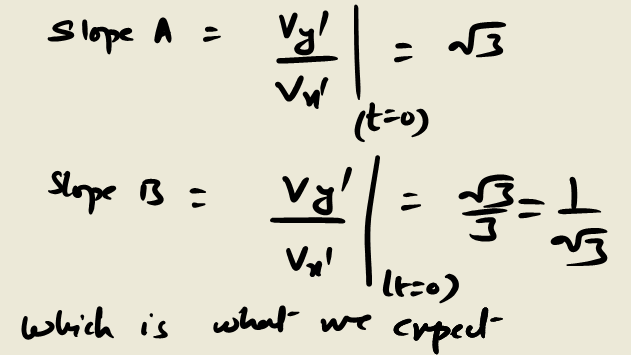 Slope A = Vy'/Vx' |(t=0) = √3
Slope B = Vy'/Vx' |(t=0) = √3/3 = 1/√3
which is what we expect